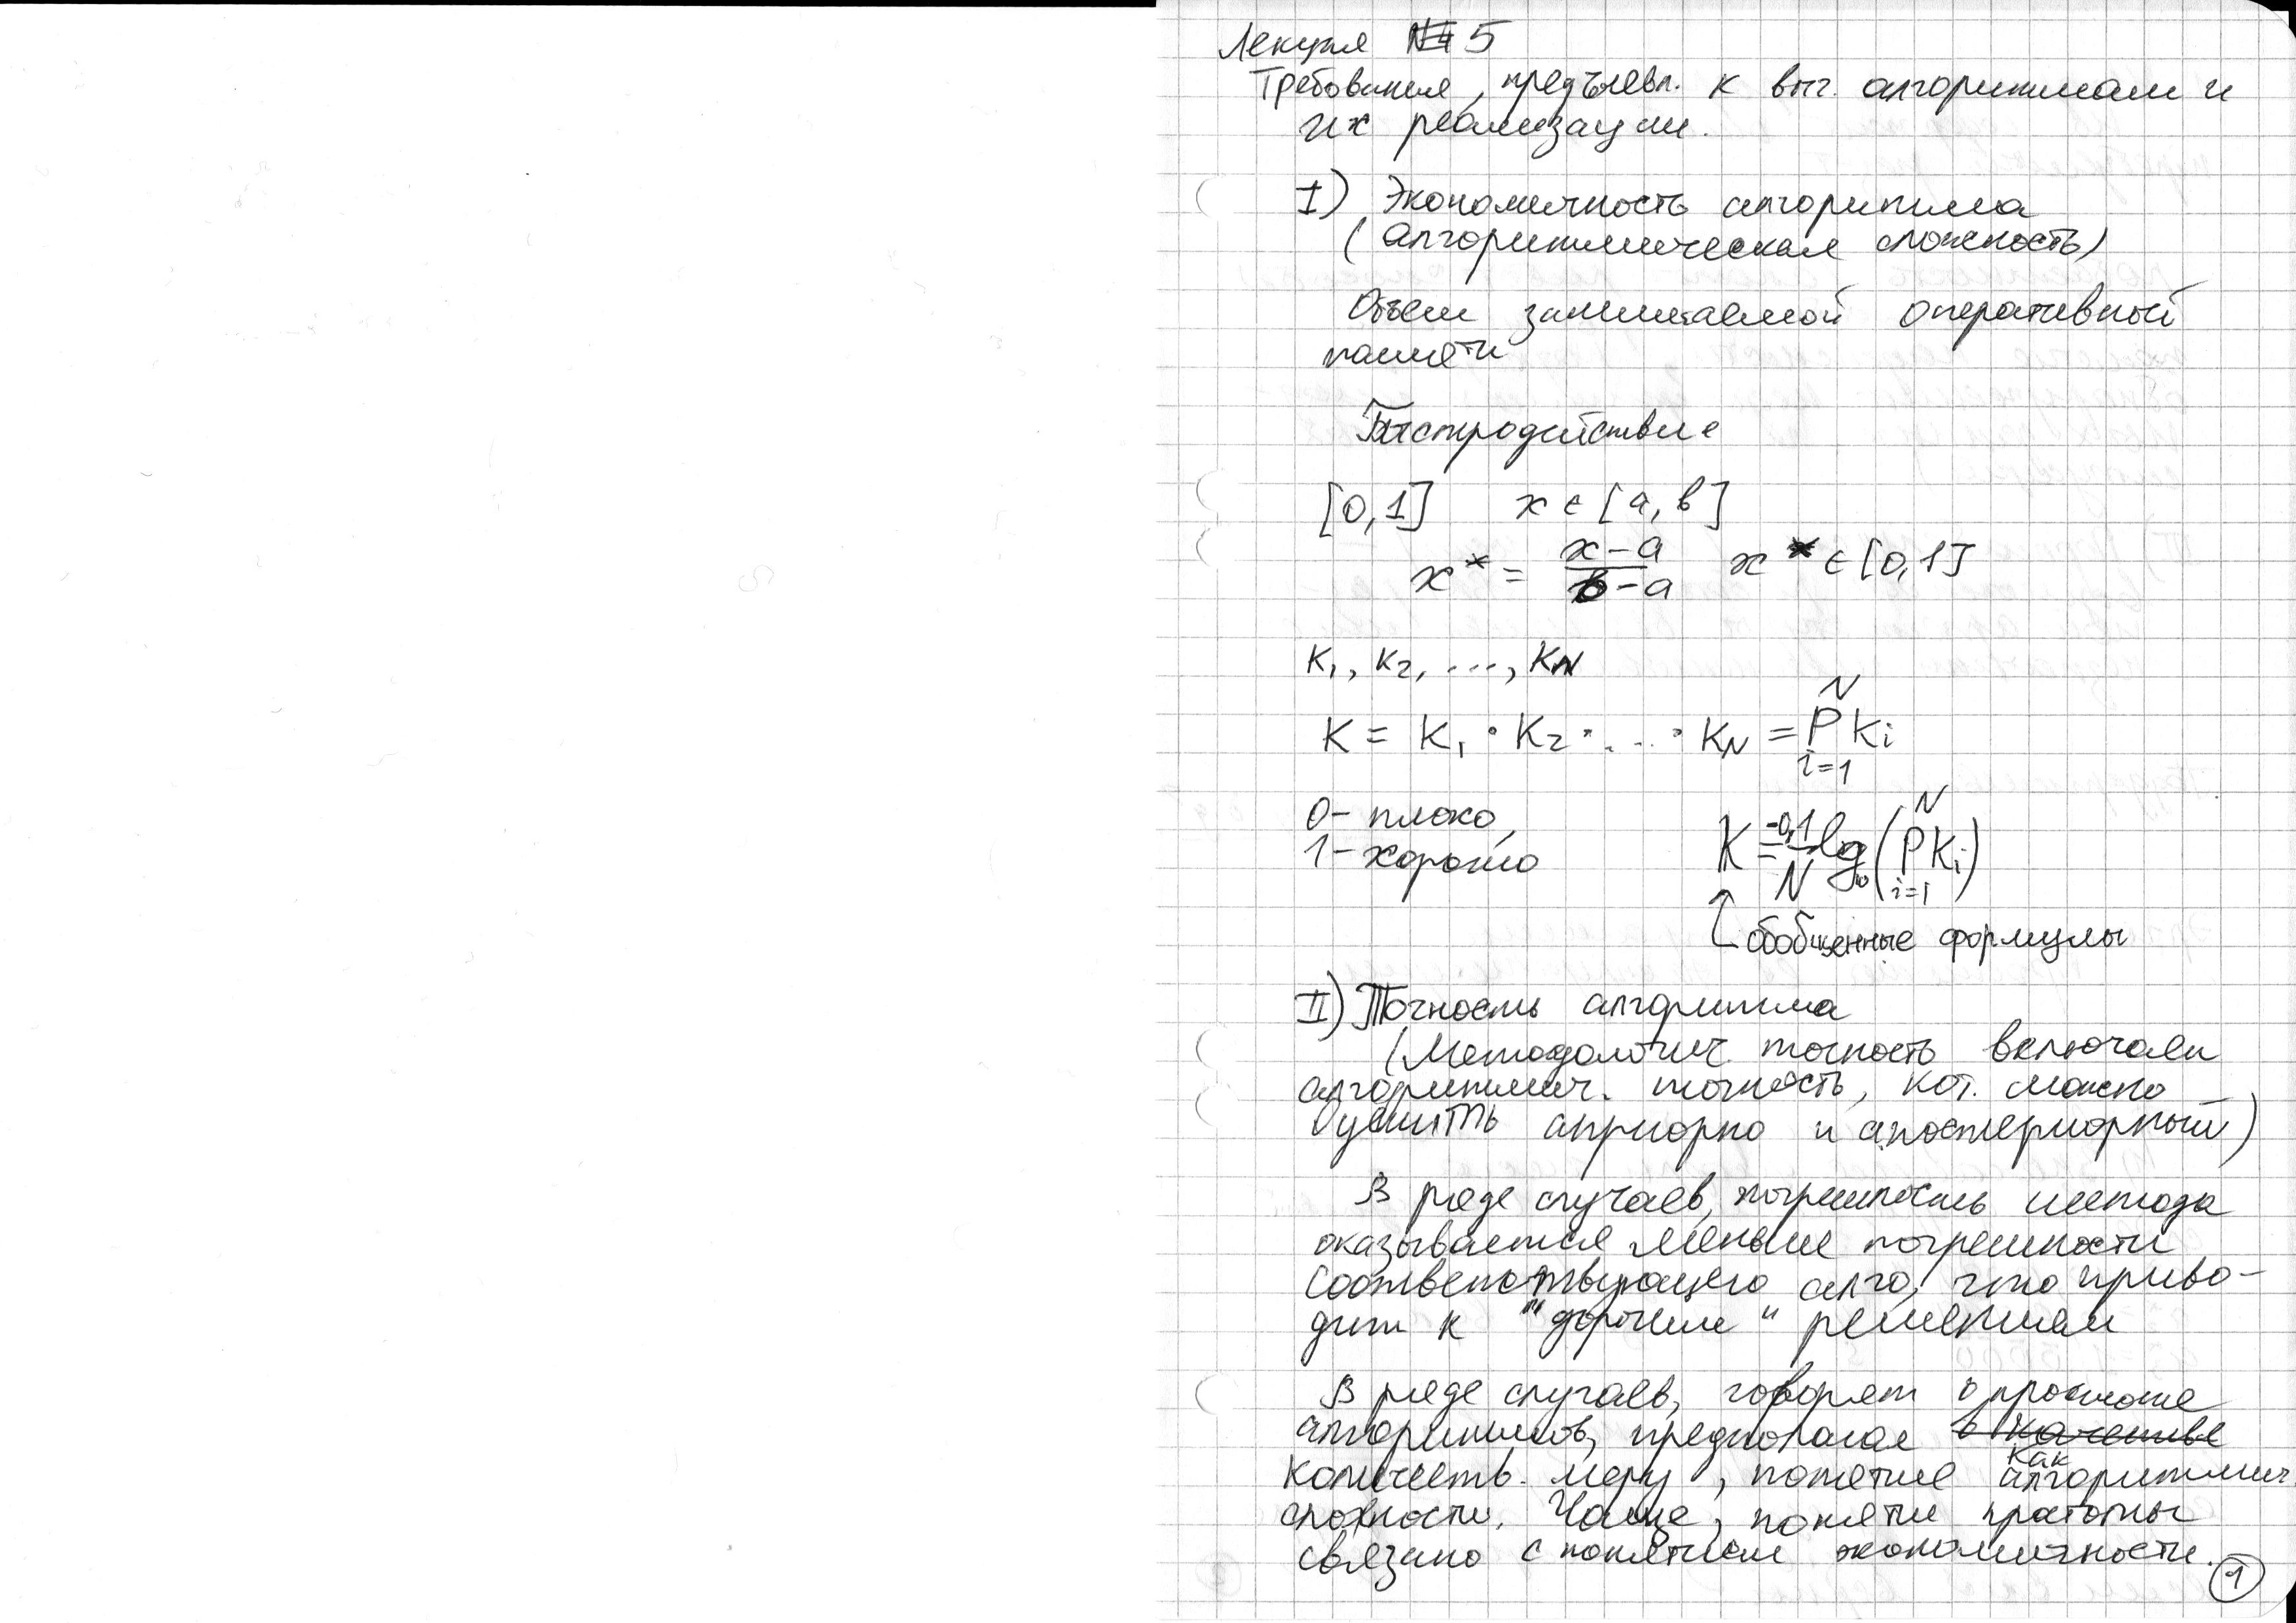 Лекция № 5
Требования, предъявл. к выч. алгоритмам и
их реализации.
I) Экономичность алгоритма
(алгоритмическая сложность)
Объем занимаемой оперативной
памяти
Быстродействие
[0,1] x ∈ [a, b]
x* = (x-a)/(b-a) x* ∈ [0,1]
K₁, K₂, ..., K_N
K = K₁ · K₂ · ... · K_N = P_{i=1}^{N} K_i
0- плохо,
1- хорошо
K = -0,1/N lg₁₀(P_{i=1}^{N} K_i)
обобщенные формулы
II) Точность алгоритма
(Методологич. точность включаем
алгоритмич. точность, кот. можно
оценить априорно и апостериорный)
В ряде случаев, погрешность метода
оказывается меньше погрешности
соответствующего алго, что приво-
дит к "дорогим" решениям
В ряде случаев, говорят о простоте
алгоритмов, предполагая
количеств. меру, понятие как алгоритмич.
сложности. Чаще, понятие простоты
связано с понятием экономичности.
1